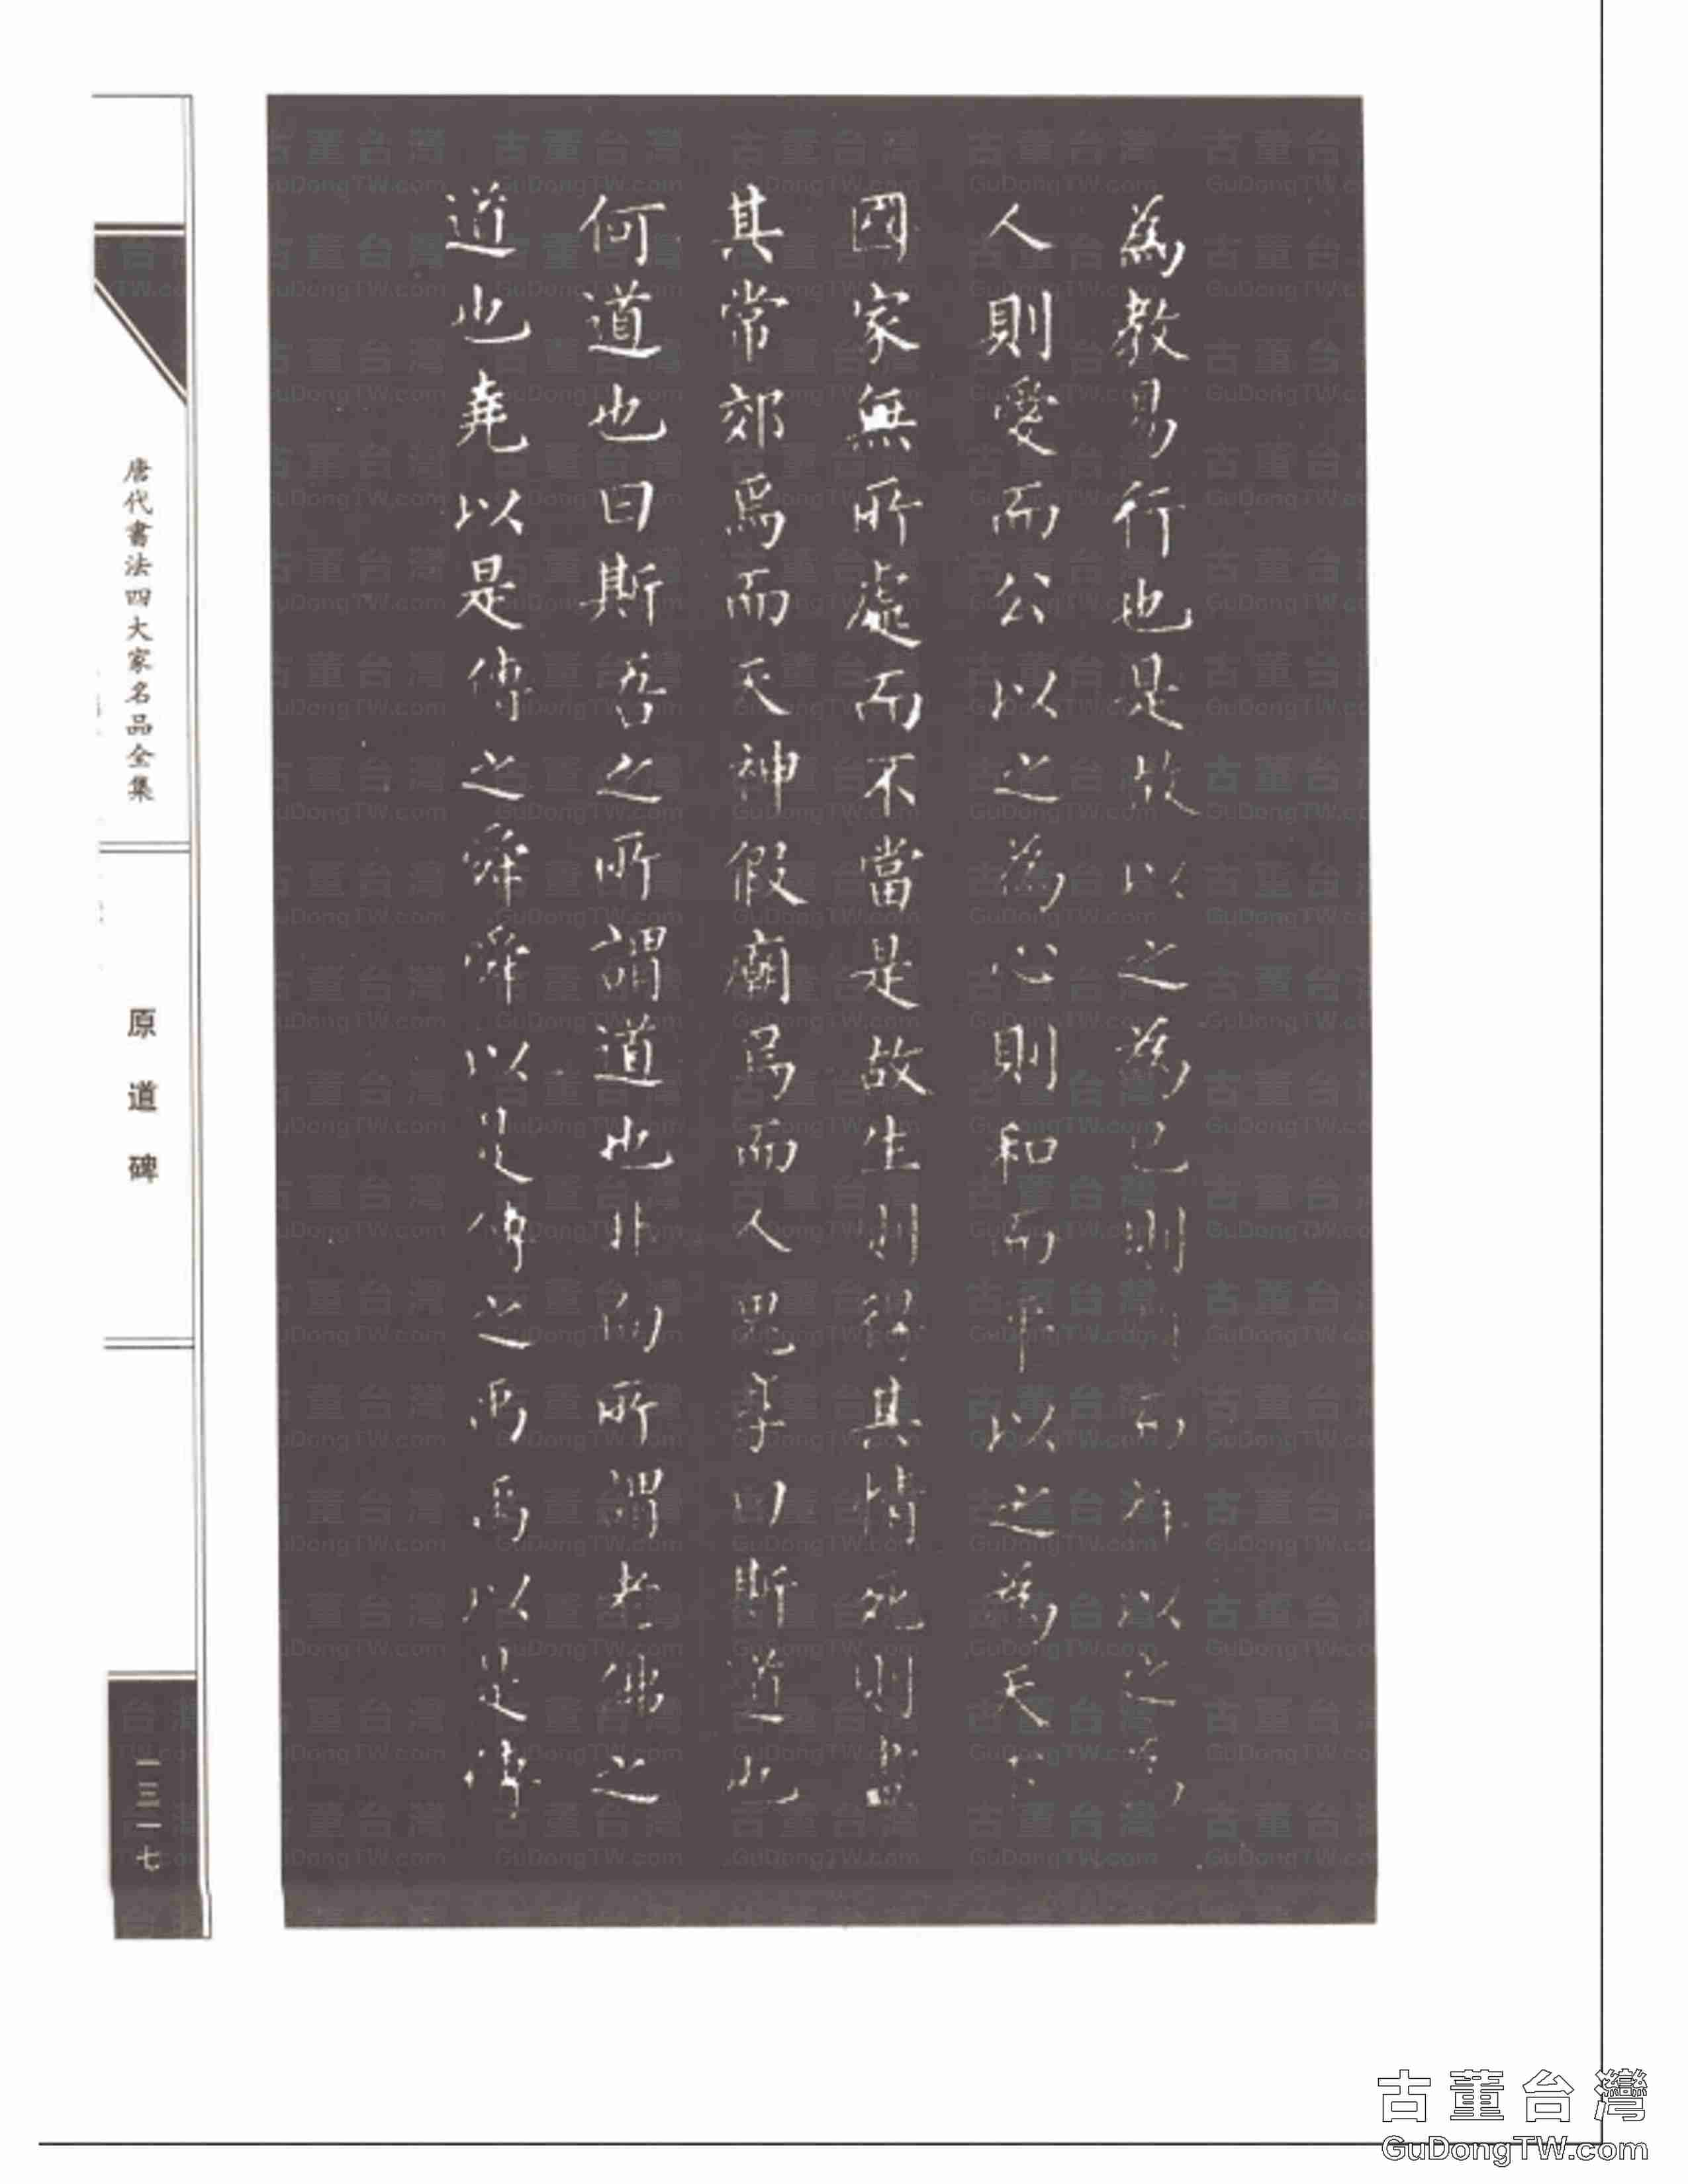 為教易行也是故以之為己則順而祥以之為
人則愛而公以之為心則和而平以之為天下
國家無所處而不當是故生則得其情死則盡
其常郊焉而天神假廟焉而人鬼享曰斯道也
何道也曰斯吾之所謂道也非向所謂老佛之
道也堯以是傳之舜舜以是傳之禹禹以是傳
唐代書法四大家名品全集
原道碑
一三一七
古董台灣
GuDongTW.com